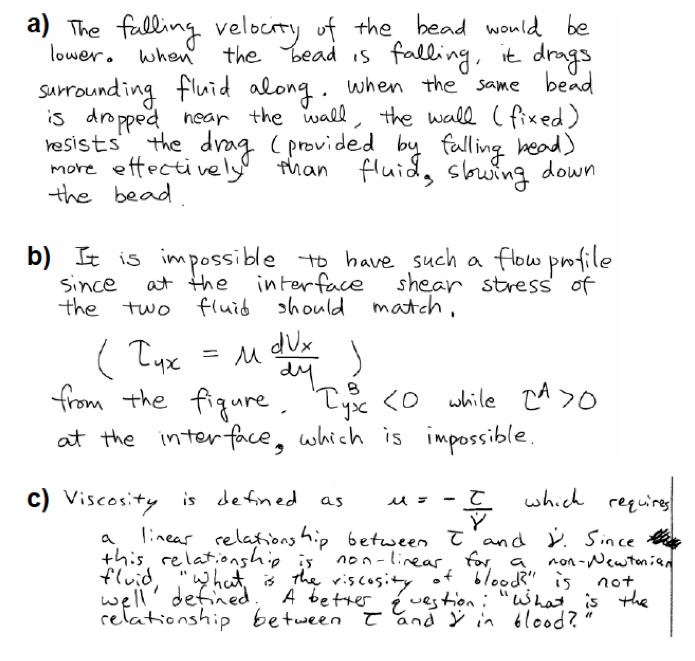 a) The falling velocity of the bead would be
lower. When the bead is falling, it drags
surrounding fluid along. When the same bead
is dropped near the wall, the wall (fixed)
resists the drag (provided by falling bead)
more effectively than fluid, slowing down
the bead.
b) It is impossible to have such a flow profile
since at the interface shear stress of
the two fluid should match.
( τyx = μ dVx/dy )
from the figure, τyx^B <0 while τ^A >0
at the interface, which is impossible.
c) Viscosity is defined as μ = - τ/γ̇ which requires
a linear relationship between τ and γ̇. Since
this relationship is non-linear for a non-Newtonian
fluid, "what is the viscosity of blood?" is not
well defined. A better question: "What is the
relationship between τ and γ̇ in blood?"